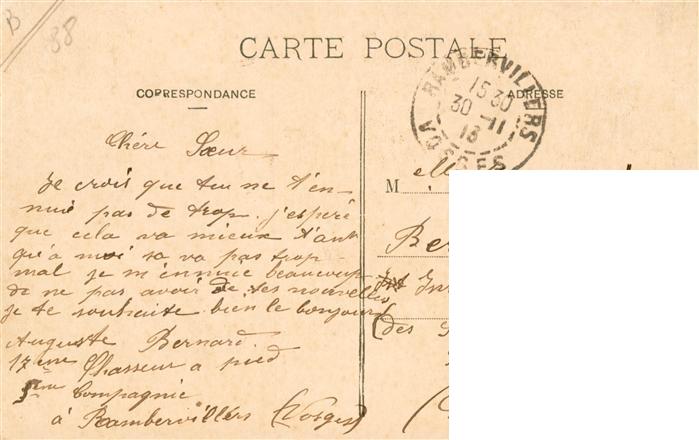 B
38
CARTE POSTALE
CORRESPONDANCE
ADRESSE
RAMBERVILLERS
15 30
30 - 11
13
VOSGES
Chère Sœur
Je crois que tu ne t'en-
nui pas de trop. j'esperè
que cela va mieux tant
qu'à moi sa va pas trop
mal je m'ennuie beaucoup
de ne pas avoir de tes nouvelles
je te souhaite bien le bonjour
Auguste Bernard.
17 eme Chasseur a pied
5eme Compagnie
à Rambervillers (Vosges)
M elle
Be
In
(des
(